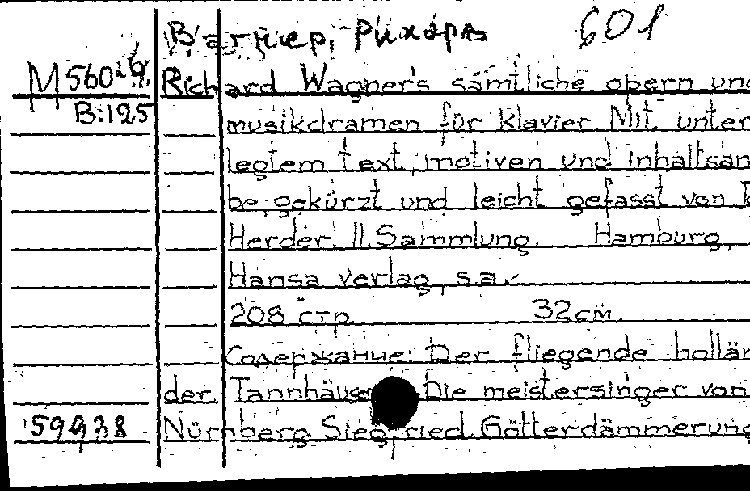 Вагнер, Рихард 601
M 560 Richard Wagner's sämtliche opern und
B:125 musikdramen für Klavier Mit unter
legtem text, motiven und inhaltsan
be, gekürzt und leicht gefasst von
Herder. II Sammlung. Hamburg,
Hansa verlag, s.a.
208 стр. 32см.
Содержание: Der fliegende hollän
der. Tannhäuser Die meistersinger von
59938 Nürnberg Siegfried. Götterdämmerung